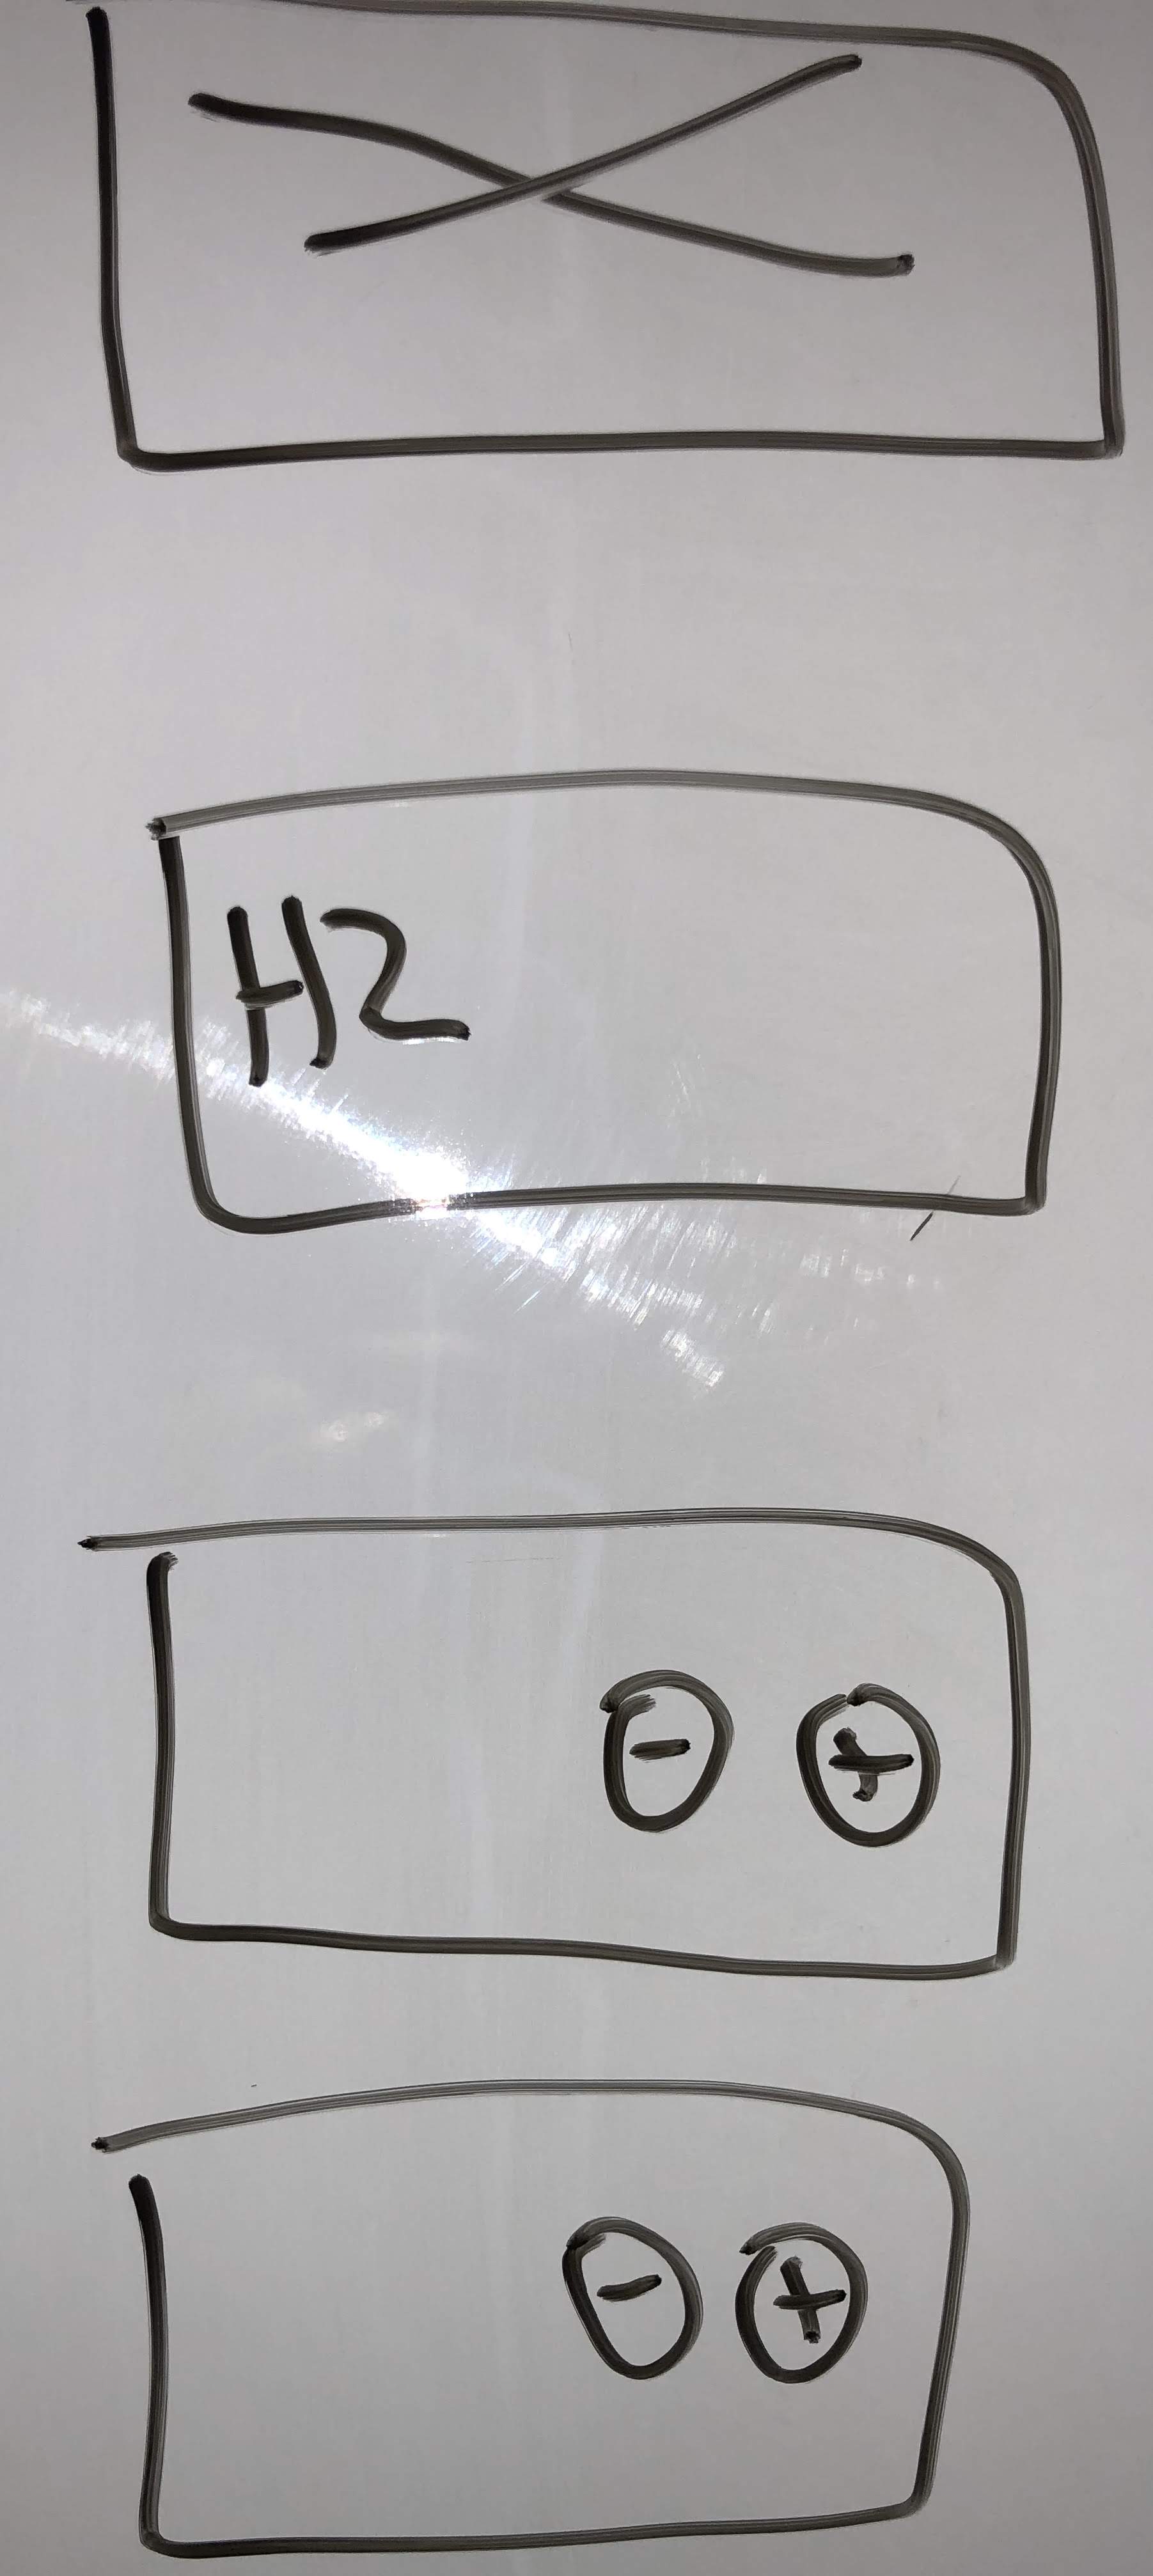 X
H2
- +
- +